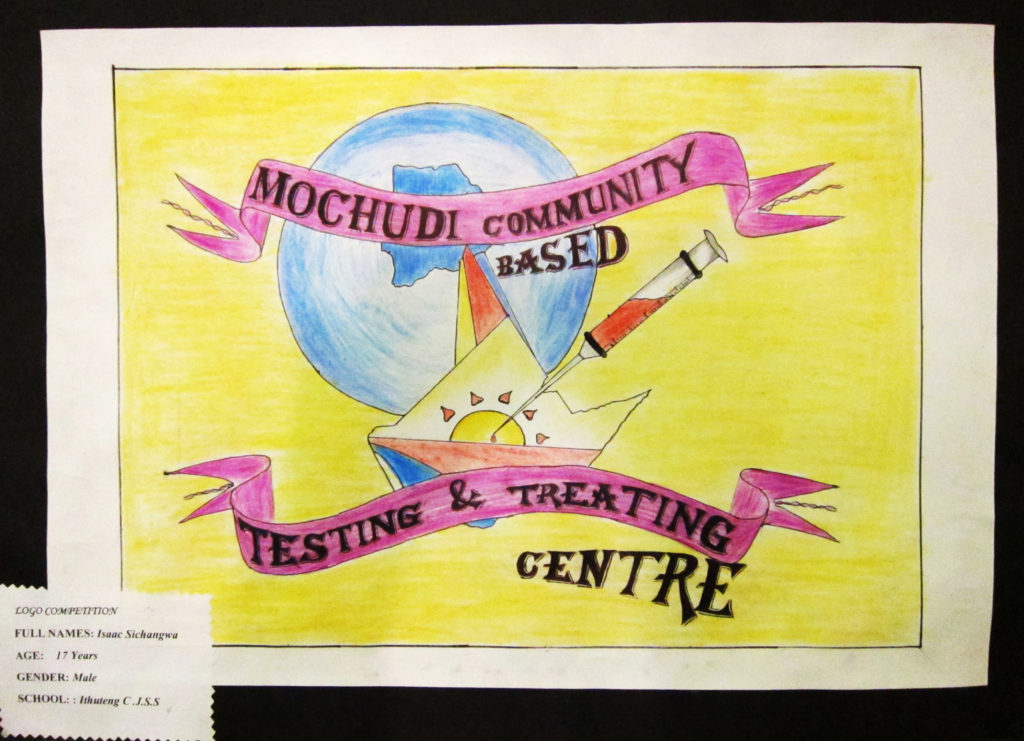 MOCHUDI COMMUNITY
BASED
TESTING & TREATING
CENTRE
LOGO COMPETITION
FULL NAMES: Isaac Sichangwa
AGE: 17 Years
GENDER: Male
SCHOOL: : Ithuteng C .J.S.S